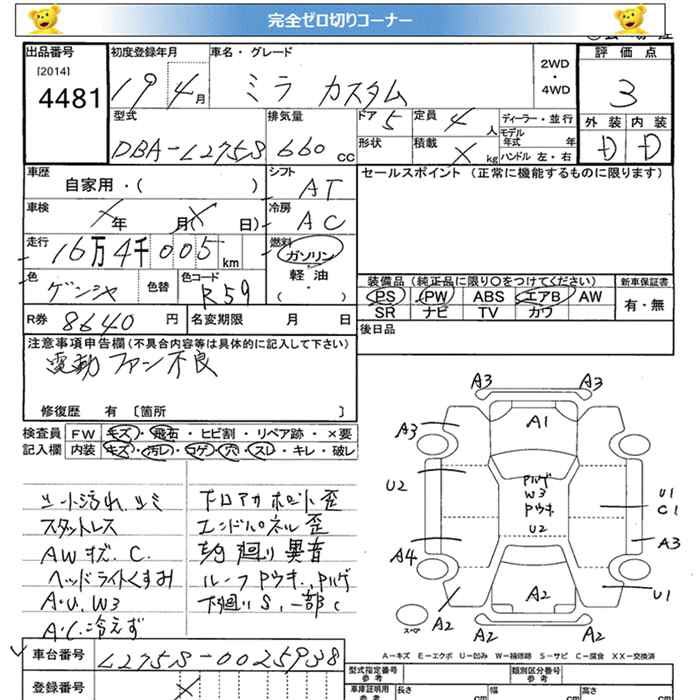 完全ゼロ切りコーナー
出品番号 初度登録年月 車名・グレード 2WD・4WD 評価点
[2014]
4481 19 4月 ミラ カスタム 3
型式 排気量 ドア 5 定員 4人 ディーラー・並行 外装 内装
DBA-L275S 660cc 形状 積載 X kg モデル年式 年 D D
ハンドル 左・右
車歴 自家用・( ) シフト AT セールスポイント (正常に機能するものに限ります)
車検 年 月( 日) 冷房 AC
走行 16万4千005km 燃料 ガソリン・軽油
色 ゲンシャ 色替 色コード R59 ( )
装備品(純正品に限り○をつけてください) 新車保証書
PS PW ABS エアB AW 有・無
SR ナビ TV カワ
R券 8640円 名変期限 月 日 後日品
注意事項申告欄(不具合内容等は具体的に記入して下さい)
電動ファン不良
修復歴 有 〔箇所 〕
検査員 FW キズ・飛石・ヒビ割・リペア跡・×要
記入欄 内装 キズ・汚レ・コゲ・穴・スレ・キレ・破レ
シート汚れ、シミ
スタットレス
AWキズ.C.
ヘッドライトくすみ
A・U、W3
A.C.冷えず
エンドパネル歪
異音
ルーフPウキ、Pハゲ
下廻りS、一部C
A3 A3
A3 A1
U2 Pハゲ
W3
Pウキ
U2
U1
C1
A4 A3
A2 A2 U1
A2 A2
スペア
A-キズ E-エクボ U-凹み W-補修跡 S-サビ C-腐食 XX-交換済
車台番号 L275S-0025938
登録番号
型式指定番号 参考 類別区分番号 参考
車庫証明用 参考 長さ cm 幅 cm 高さ cm